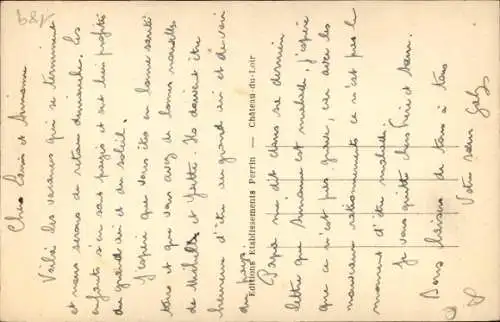 58V
Chers Louis et Simonne
Voilà les vacances qui se terminent
et nous serons de retour dimanche. Les
enfants s'en sont payés et ont bien profité
du grand air et du soleil.
J'espère que vous êtes en bonne santé
tous et que vous avez de bonnes nouvelles
de Michelle et Yvette. Ils doivent être
heureux d'être au grand air et de voir
du pays.
Papa me dit dans sa dernière
lettre que Simonne est malade, j'espère
que ce n'est pas grave, car avec les
mauvais ravitaillements ce n'est pas le
moment d'être malade.
Je vous quitte chers Frère et Sœur.
Bons baisers de tous à tous
Votre sœur Gaby
Editions Etablissements Perrin — Château-du-Loir